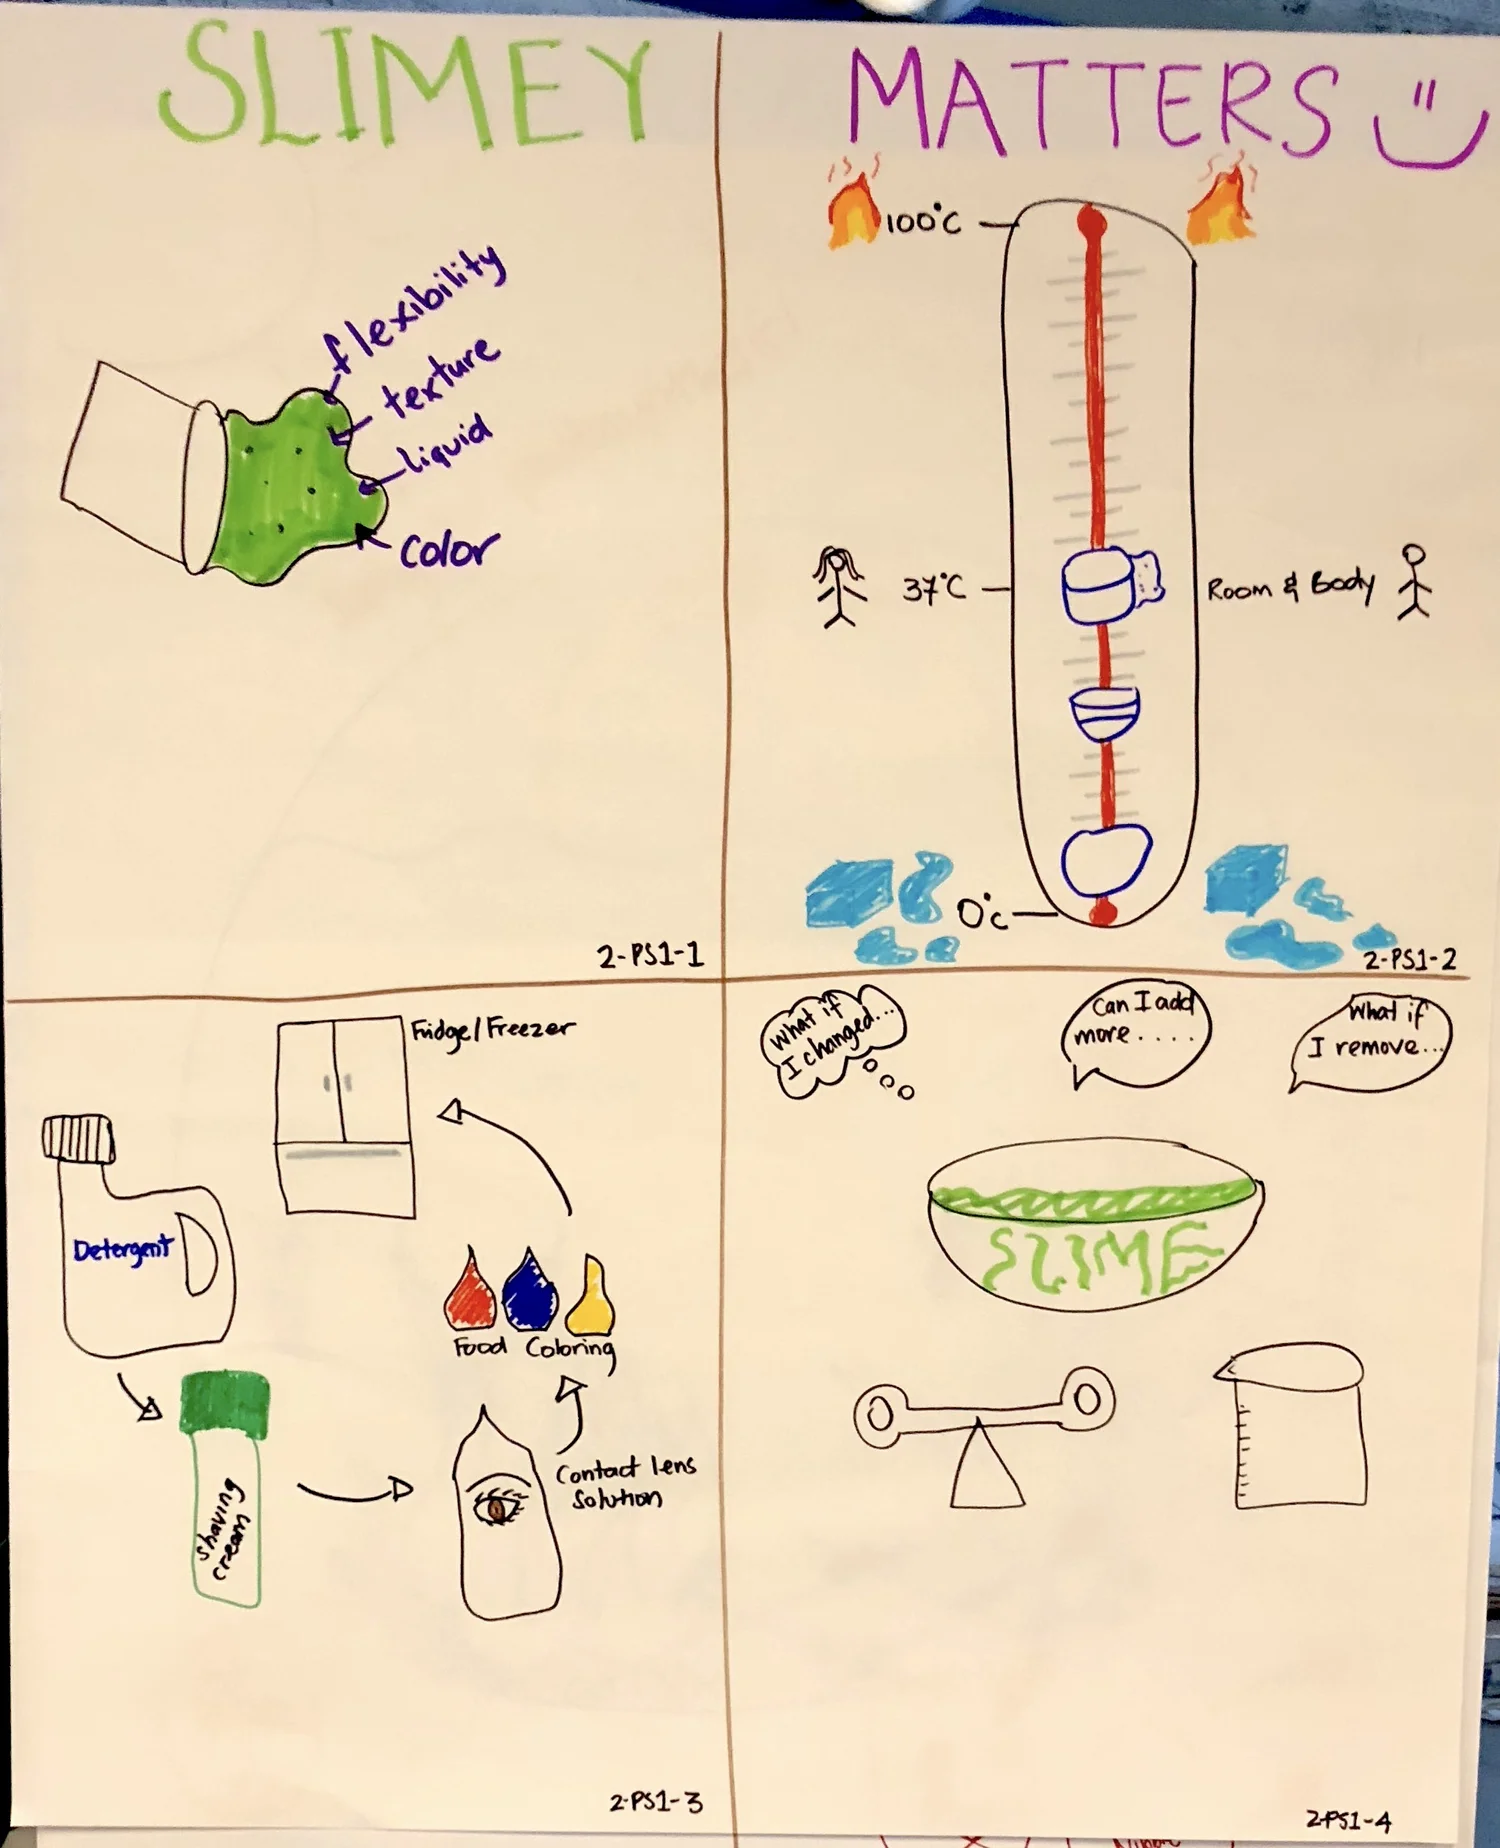 SLIMEY
MATTERS
flexibility
texture
liquid
color
2-PS1-1
100°C
37°C
Room & Body
0°c
2-PS1-2
Fridge/Freezer
Detergent
Food Coloring
Contact lens
solution
shaving
cream
2-PS1-3
What if
I changed...
Can I add
more....
What if
I remove...
SLIME
2-PS1-4